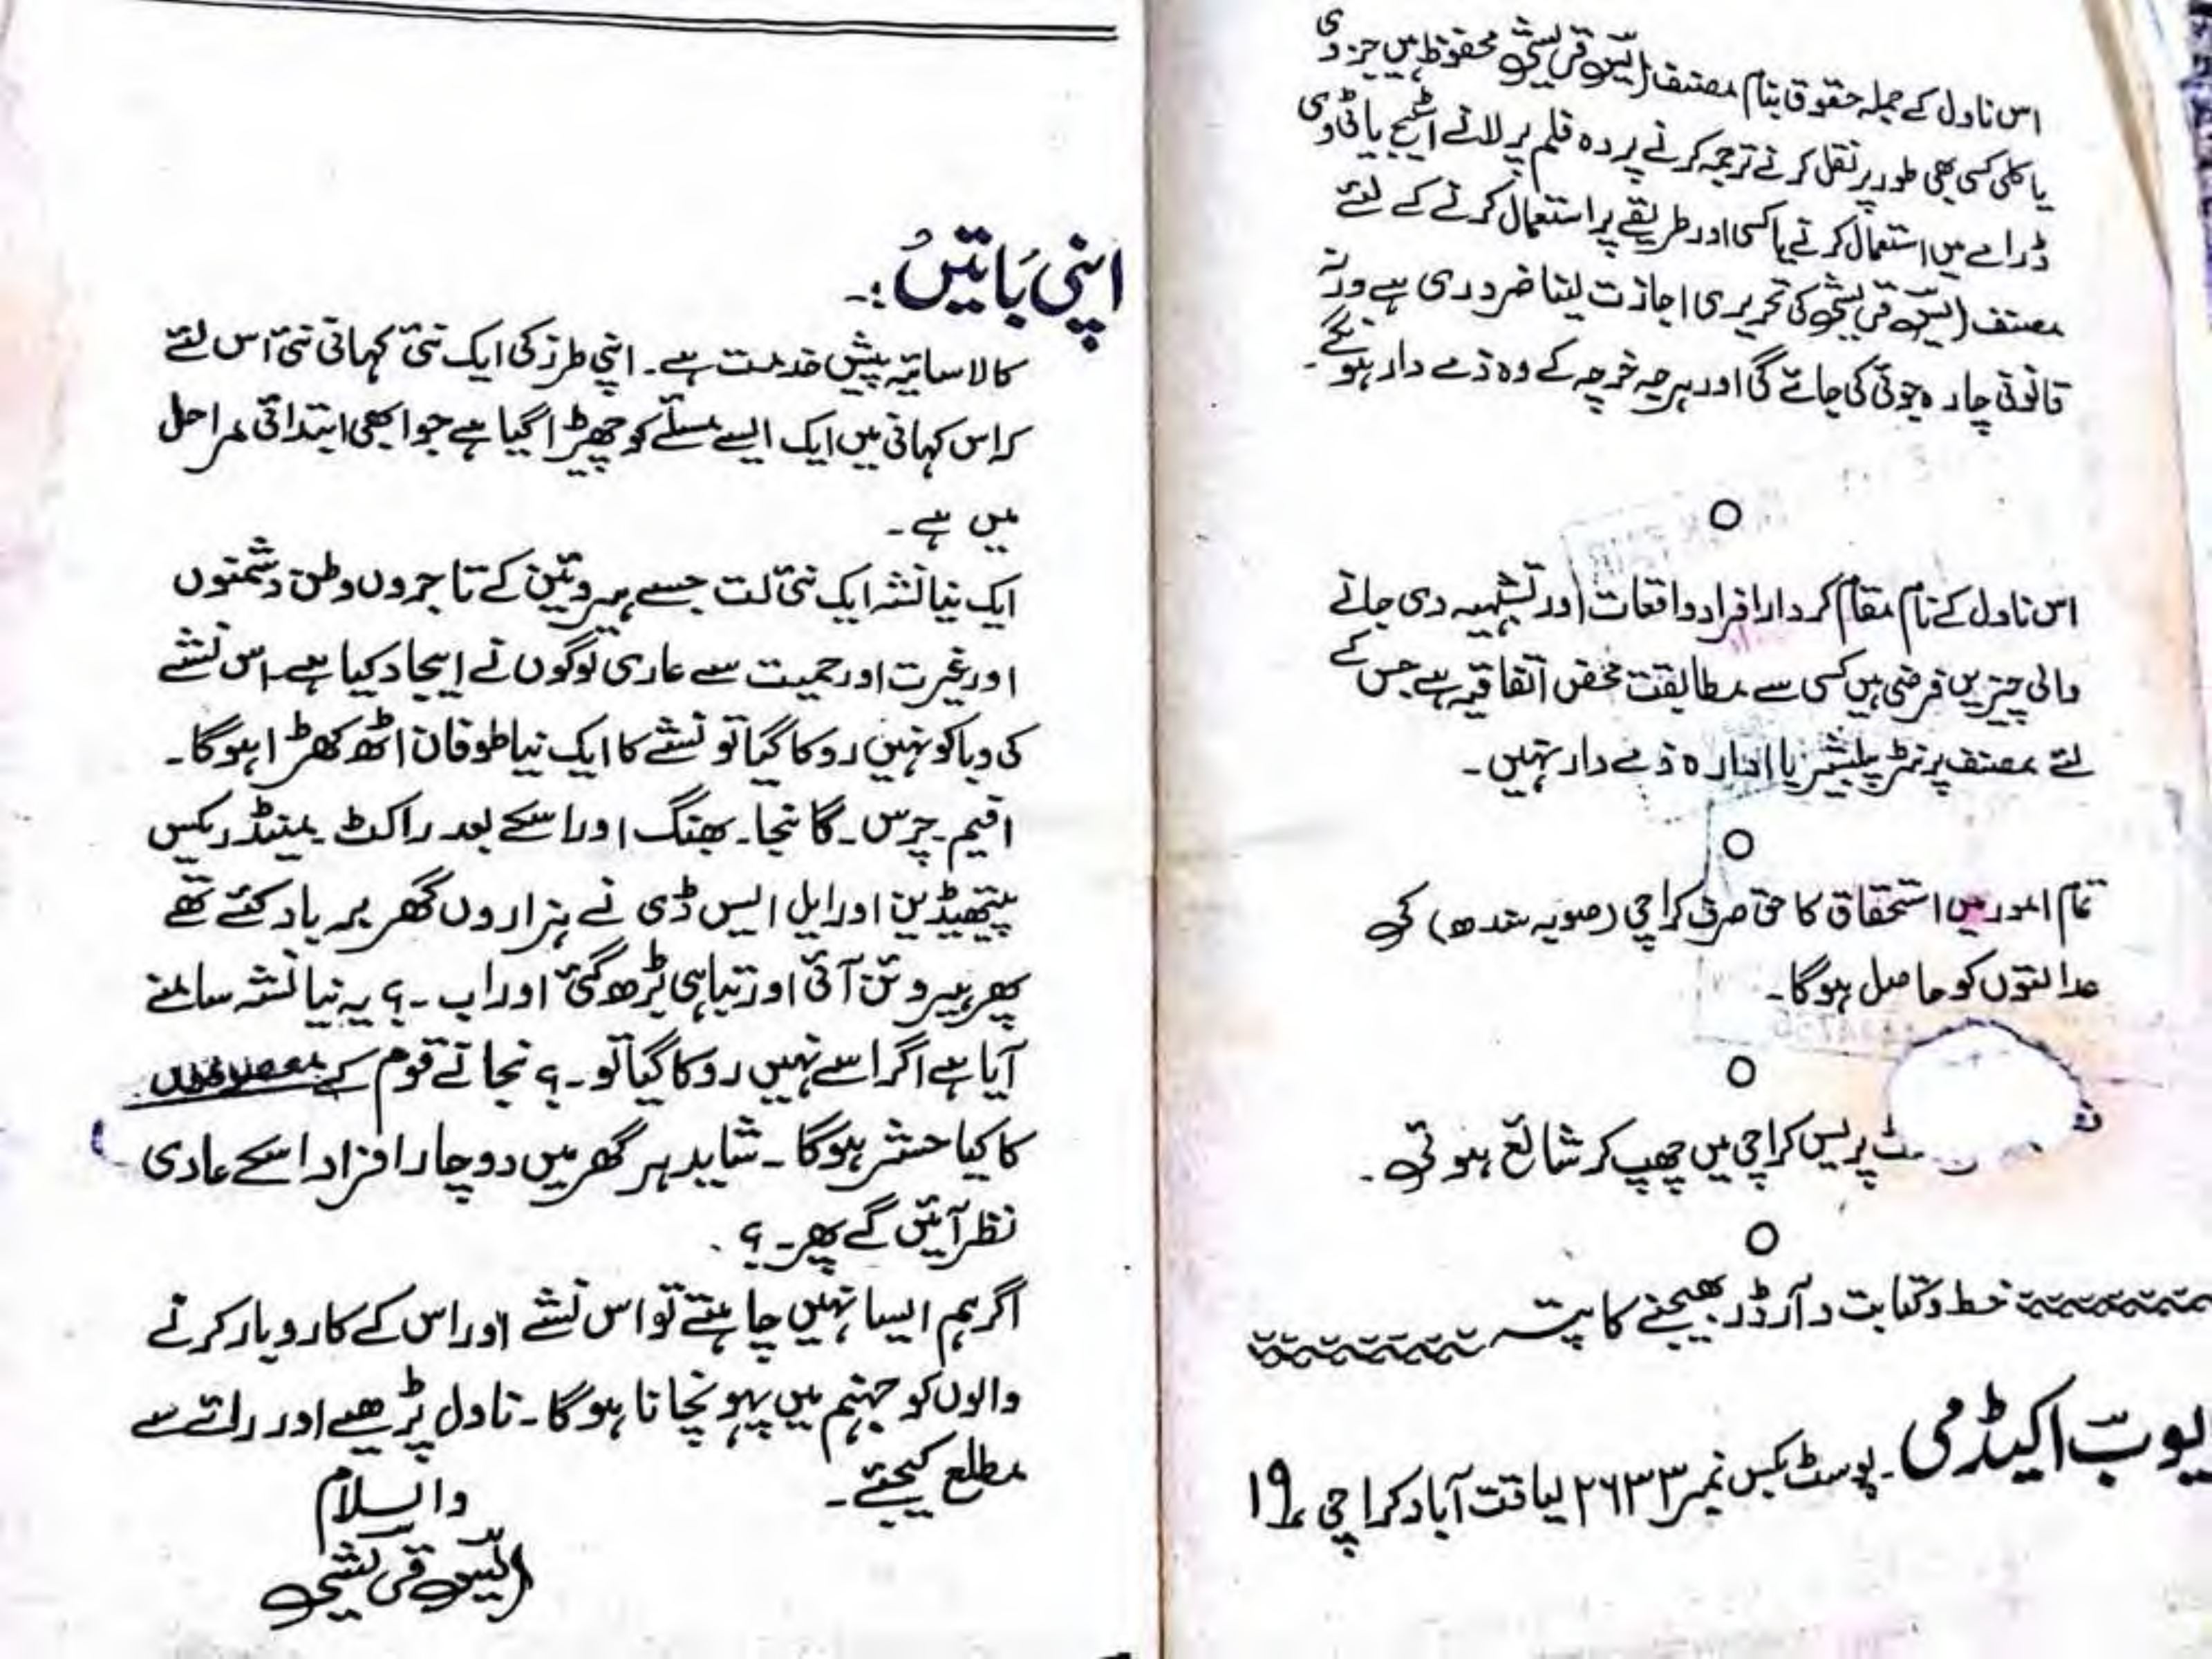 اس ناول کے جملہ حقوق بنام مصنف ایس قریشی محفوظ ہیں جزوی
یا کلی کسی بھی طور پر نقل کرنے ترجمہ کرنے پردہ فلم پر لانے اسٹیج یا ٹی وی
ڈرامے میں استعمال کرنے یا کسی اور طریقے پر استعمال کرنے کے لئے
مصنف ایس قریشی کی تحریری اجازت لینا ضروری ہے ورنہ
قانونی چارہ جوئی کی جائے گی اور ہرجہ خرچہ کے وہ ذمے دار ہونگے۔
اس ناول کے نام مقام کردار افراد واقعات اور تشبیہہ دی جانے
والی چیزیں فرضی ہیں کسی سے مطابقت محض اتفاقیہ ہے جس کے
لئے مصنف پرنٹر پبلیشر یا ادارہ ذمے دار نہیں۔
تمام امور میں استحقاق کا حق صرف کراچی (صوبہ سندھ) کی
عدالتوں کو حاصل ہوگا۔
پریس کراچی میں چھپ کر شائع ہوئی۔
خط و کتابت و آرڈر بھیجنے کا پتہ
اکیڈمی۔ پوسٹ بکس نمبر ۲۶۳۳ لیاقت آباد کراچی ۱۹
اپنی باتیں :۔
کالا سایہ پیش خدمت ہے۔ اپنی طرز کی ایک نئی کہانی نئی اس لئے
کہ اس کہانی میں ایک ایسے مسلئے کو چھیڑا گیا ہے جو ابھی ابتدائی مراحل
میں ہے۔
ایک نیا نشہ ایک نئی لت جسے ہیروئین کے تاجروں وطن دشمنوں
اور غیرت اور حمیت سے عاری لوگوں نے ایجاد کیا ہے۔ اس نشے
کی وبا کو نہیں روکا گیا تو نشے کا ایک نیا طوفان اٹھ کھڑا ہوگا۔
افیم۔ چرس۔ گانجا۔ بھنگ اور اسکے بعد راکٹ۔ مینڈرکس
پیتھیڈین اور ایل ایس ڈی نے ہزاروں گھر برباد کئے تھے
پھر ہیروئن آئی اور تباہی بڑھ گئی اور اب۔؟ یہ نیا نشہ سامنے
آیا ہے اگر اسے نہیں روکا گیا تو۔؟ نجانے قوم کے معصوموں
کا کیا حشر ہوگا۔ شاید ہر گھر میں دو چار افراد اسکے عادی
نظر آئیں گے پھر۔؟
اگر ہم ایسا نہیں چاہتے تو اس نشے اور اس کے کاروبار کرنے
والوں کو جہنم میں پہونچانا ہوگا۔ ناول پڑھیے اور رائے سے
مطلع کیجئے۔
والسلام
ایس قریشی